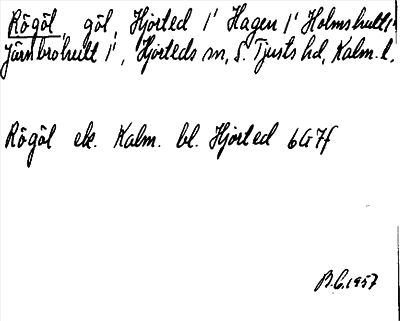 Rögöl, göl, Hjorted 1' Hagen 1' Holmshult 1'
Järnbrohult 1', Hjorteds sn, S. Tjusts hd, Kalm. l.
Rögöl ek. Kalm. bl. Hjorted 6G7f
B.C. 1957